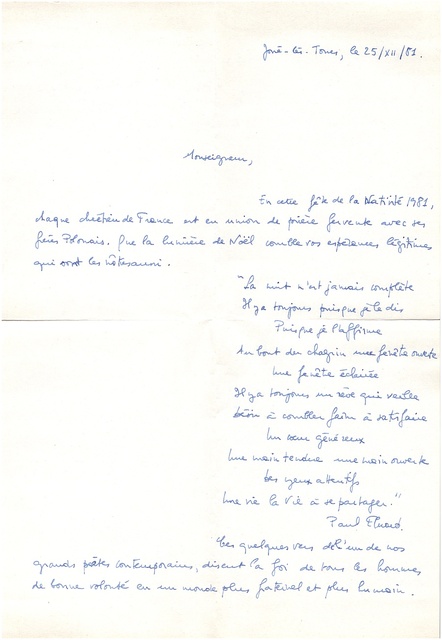 Joué-lès-Tours, le 25/XII/81.
Monseigneur,
En cette fête de la Nativité 1981,
chaque chrétien de France est en union de prière fervente avec ses
frères Polonais. Que la lumière de Noël comble vos espérances légitimes
qui sont les nôtres aussi.
"La nuit n'est jamais complète
Il y a toujours puisque je le dis
Puisque je l'affirme
Au bout du chagrin une fenêtre ouverte
Une fenêtre éclairée
Il y a toujours un rêve qui veille
désir à combler faim à satisfaire
Un cœur généreux
Une main tendue une main ouverte
Des yeux attentifs
Une vie la vie à se partager."
Paul Eluard.
Ces quelques vers de l'un de nos
grands poètes contemporains, disent la foi de tous les hommes
de bonne volonté en un monde plus fraternel et plus humain.